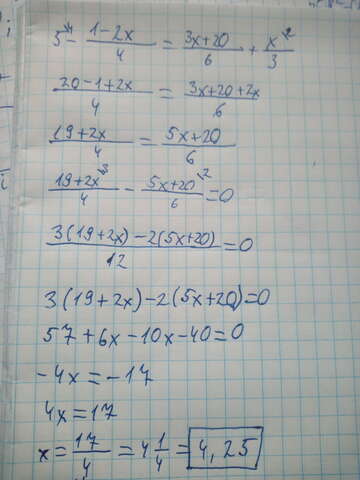 5^4 - (1-2x)/4 = (3x+20)/6 + x^2/3
(20-1+2x)/4 = (3x+20+2x)/6
(19+2x)/4 = (5x+20)/6
(19+2x)^3/4 - (5x+20)^2/6 = 0
(3(19+2x)-2(5x+20))/12 = 0
3(19+2x)-2(5x+20)=0
57+6x-10x-40=0
-4x=-17
4x=17
x=17/4=4 1/4=4,25